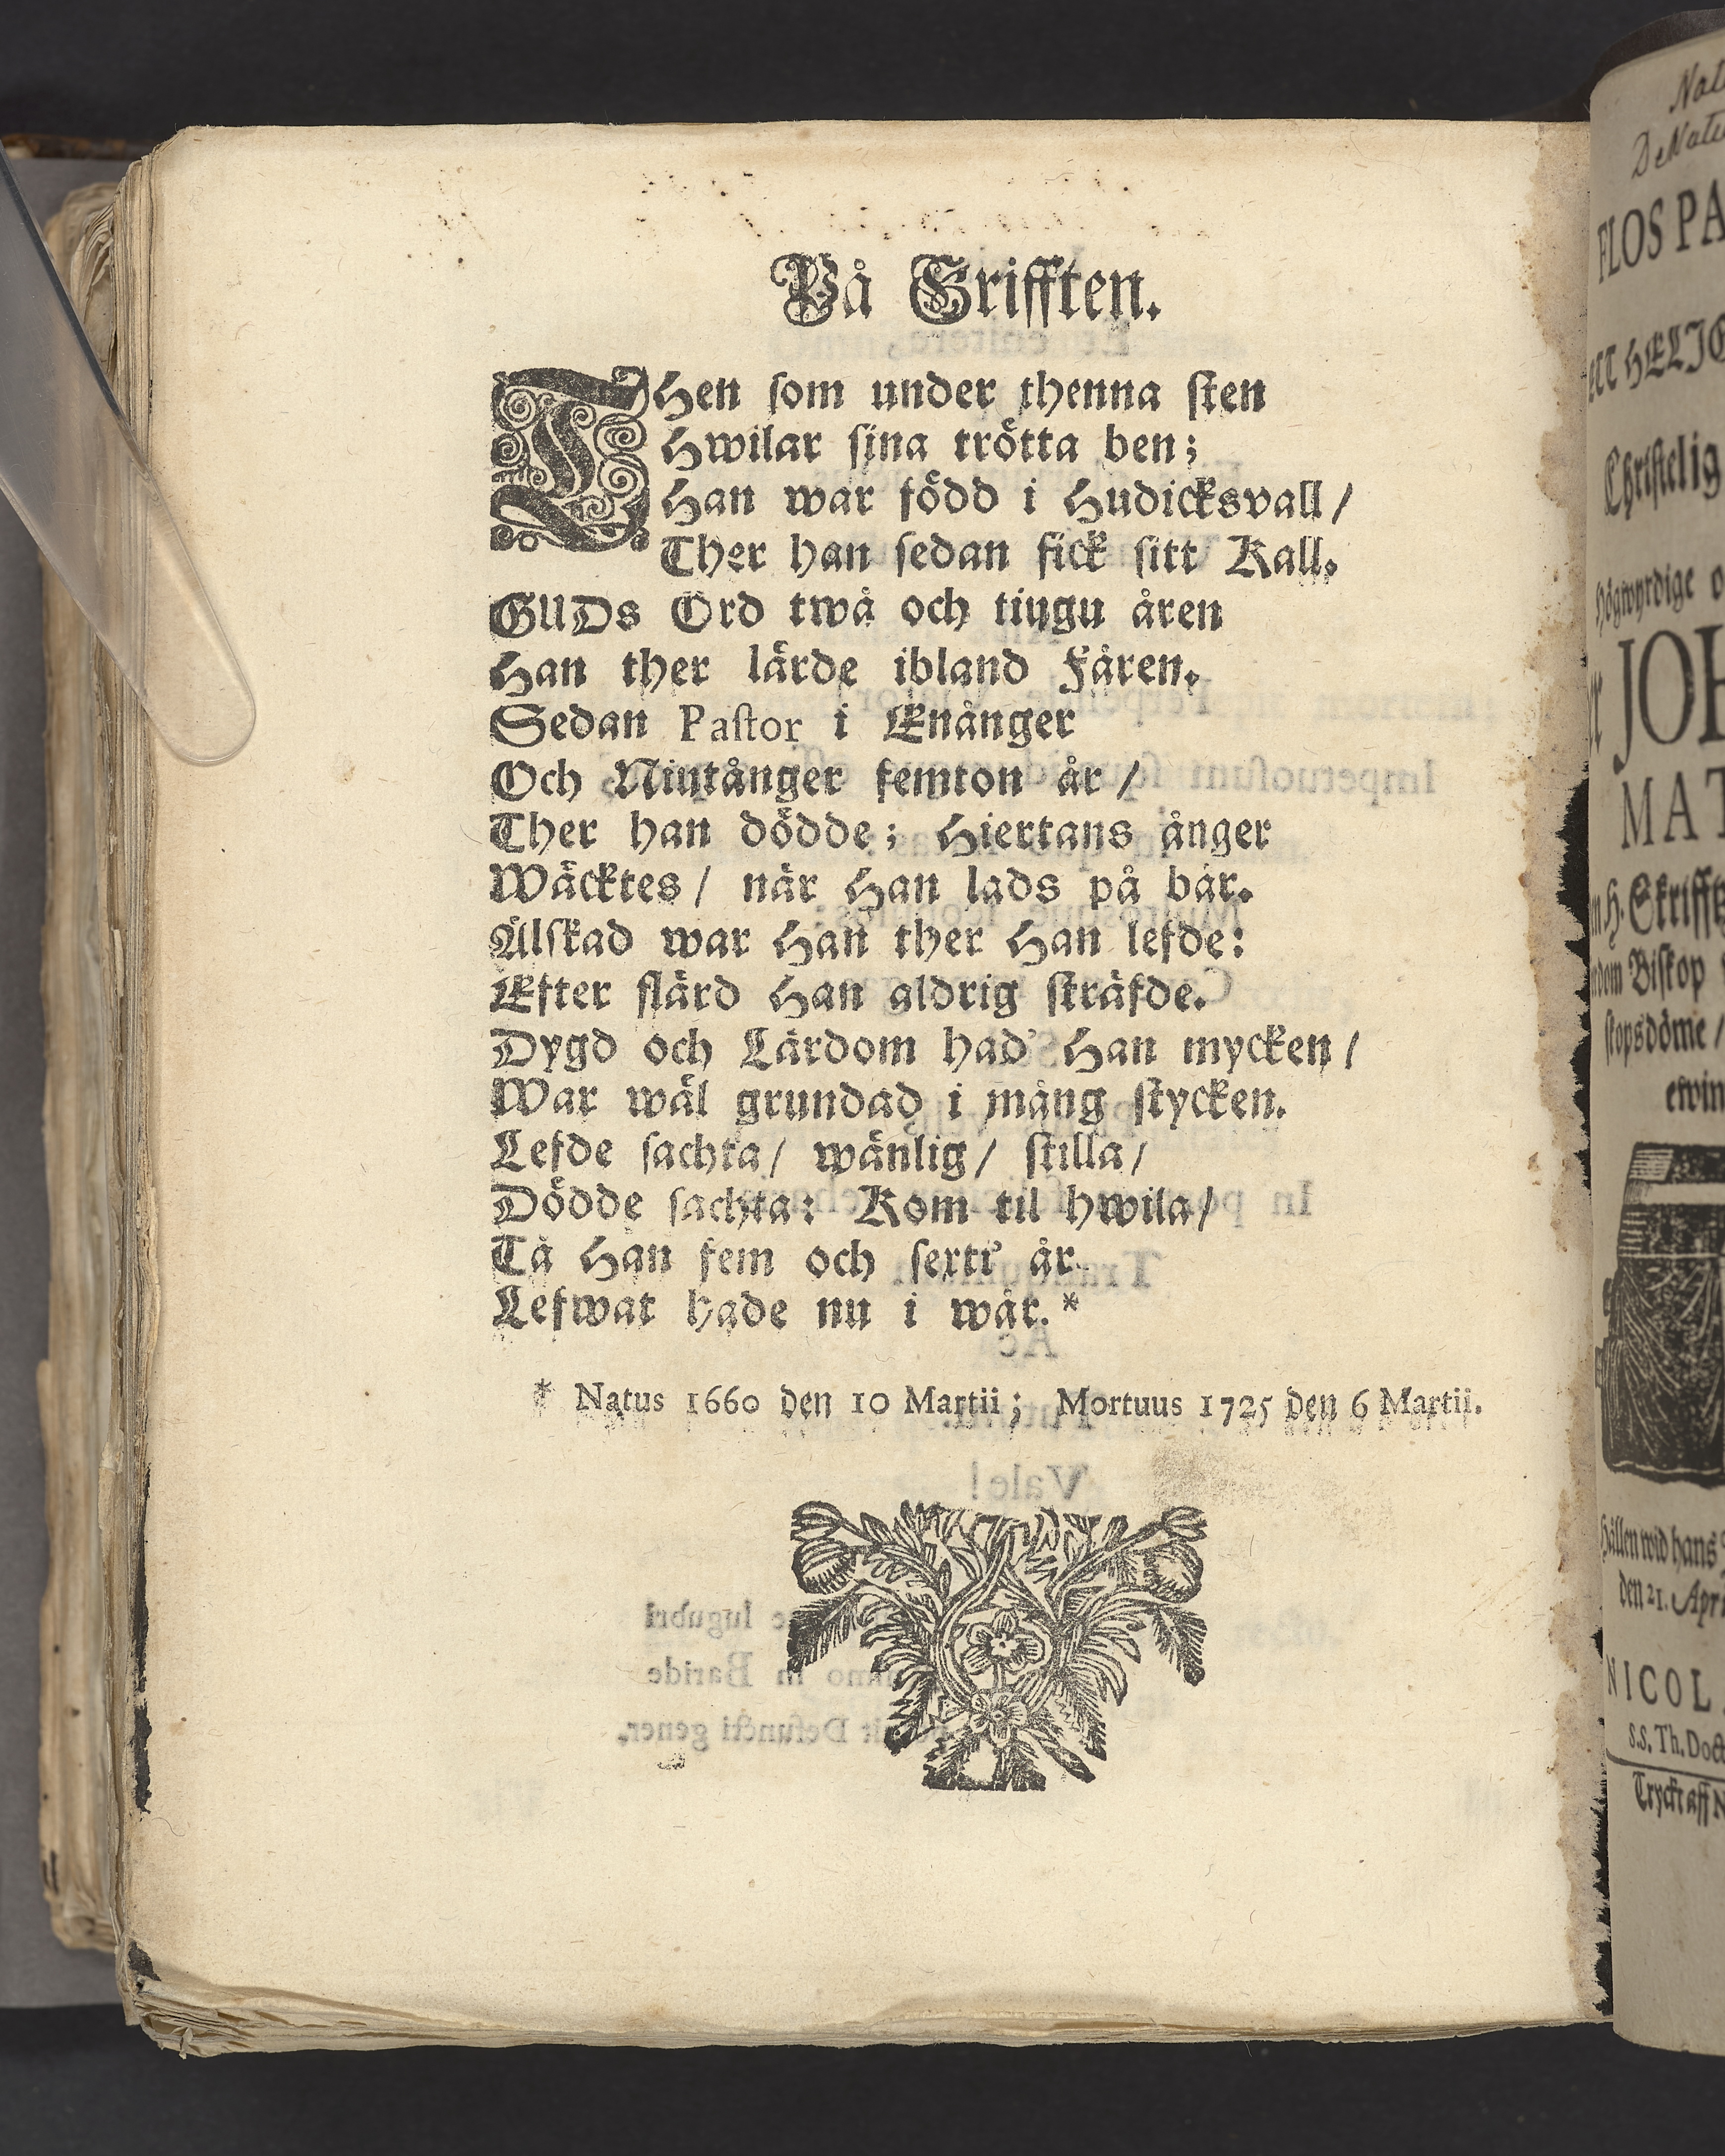 På Grifften.
THen som under thenna sten
Hwilar sina trötta ben;
Han war född i Hudicksvall/
Ther han sedan fick sitt Kall.
GUDs Ord twå och tiugu åren
Han ther lärde ibland Fåren.
Sedan Pastor i Enånger
Och Niutånger femton år/
Ther han dödde; Hiertans ånger
Wäcktes/ när Han lads på bår.
Älskad war Han ther Han lefde:
Efter flärd Han aldrig sträfde.
Dygd och Lärdom had' Han mycken/
War wäl grundad i mång stycken.
Lefde sachta/ wänlig/ stilla/
Dödde sachta: Kom til hwila/
Tå Han fem och sexti' år
Lefwat hade nu i wår.*
* Natus 1660 den 10 Martii; Mortuus 1725 den 6 Martii.
FLOS PA
HELIG
Christelig
Högwyrdige
JOH
MAT
Skrifft
Biskop
skopsdöme/
ewin
Hållen wid hans
den 21. Apri
NICOL
S.S. Th. Doct
Tryckt aff N